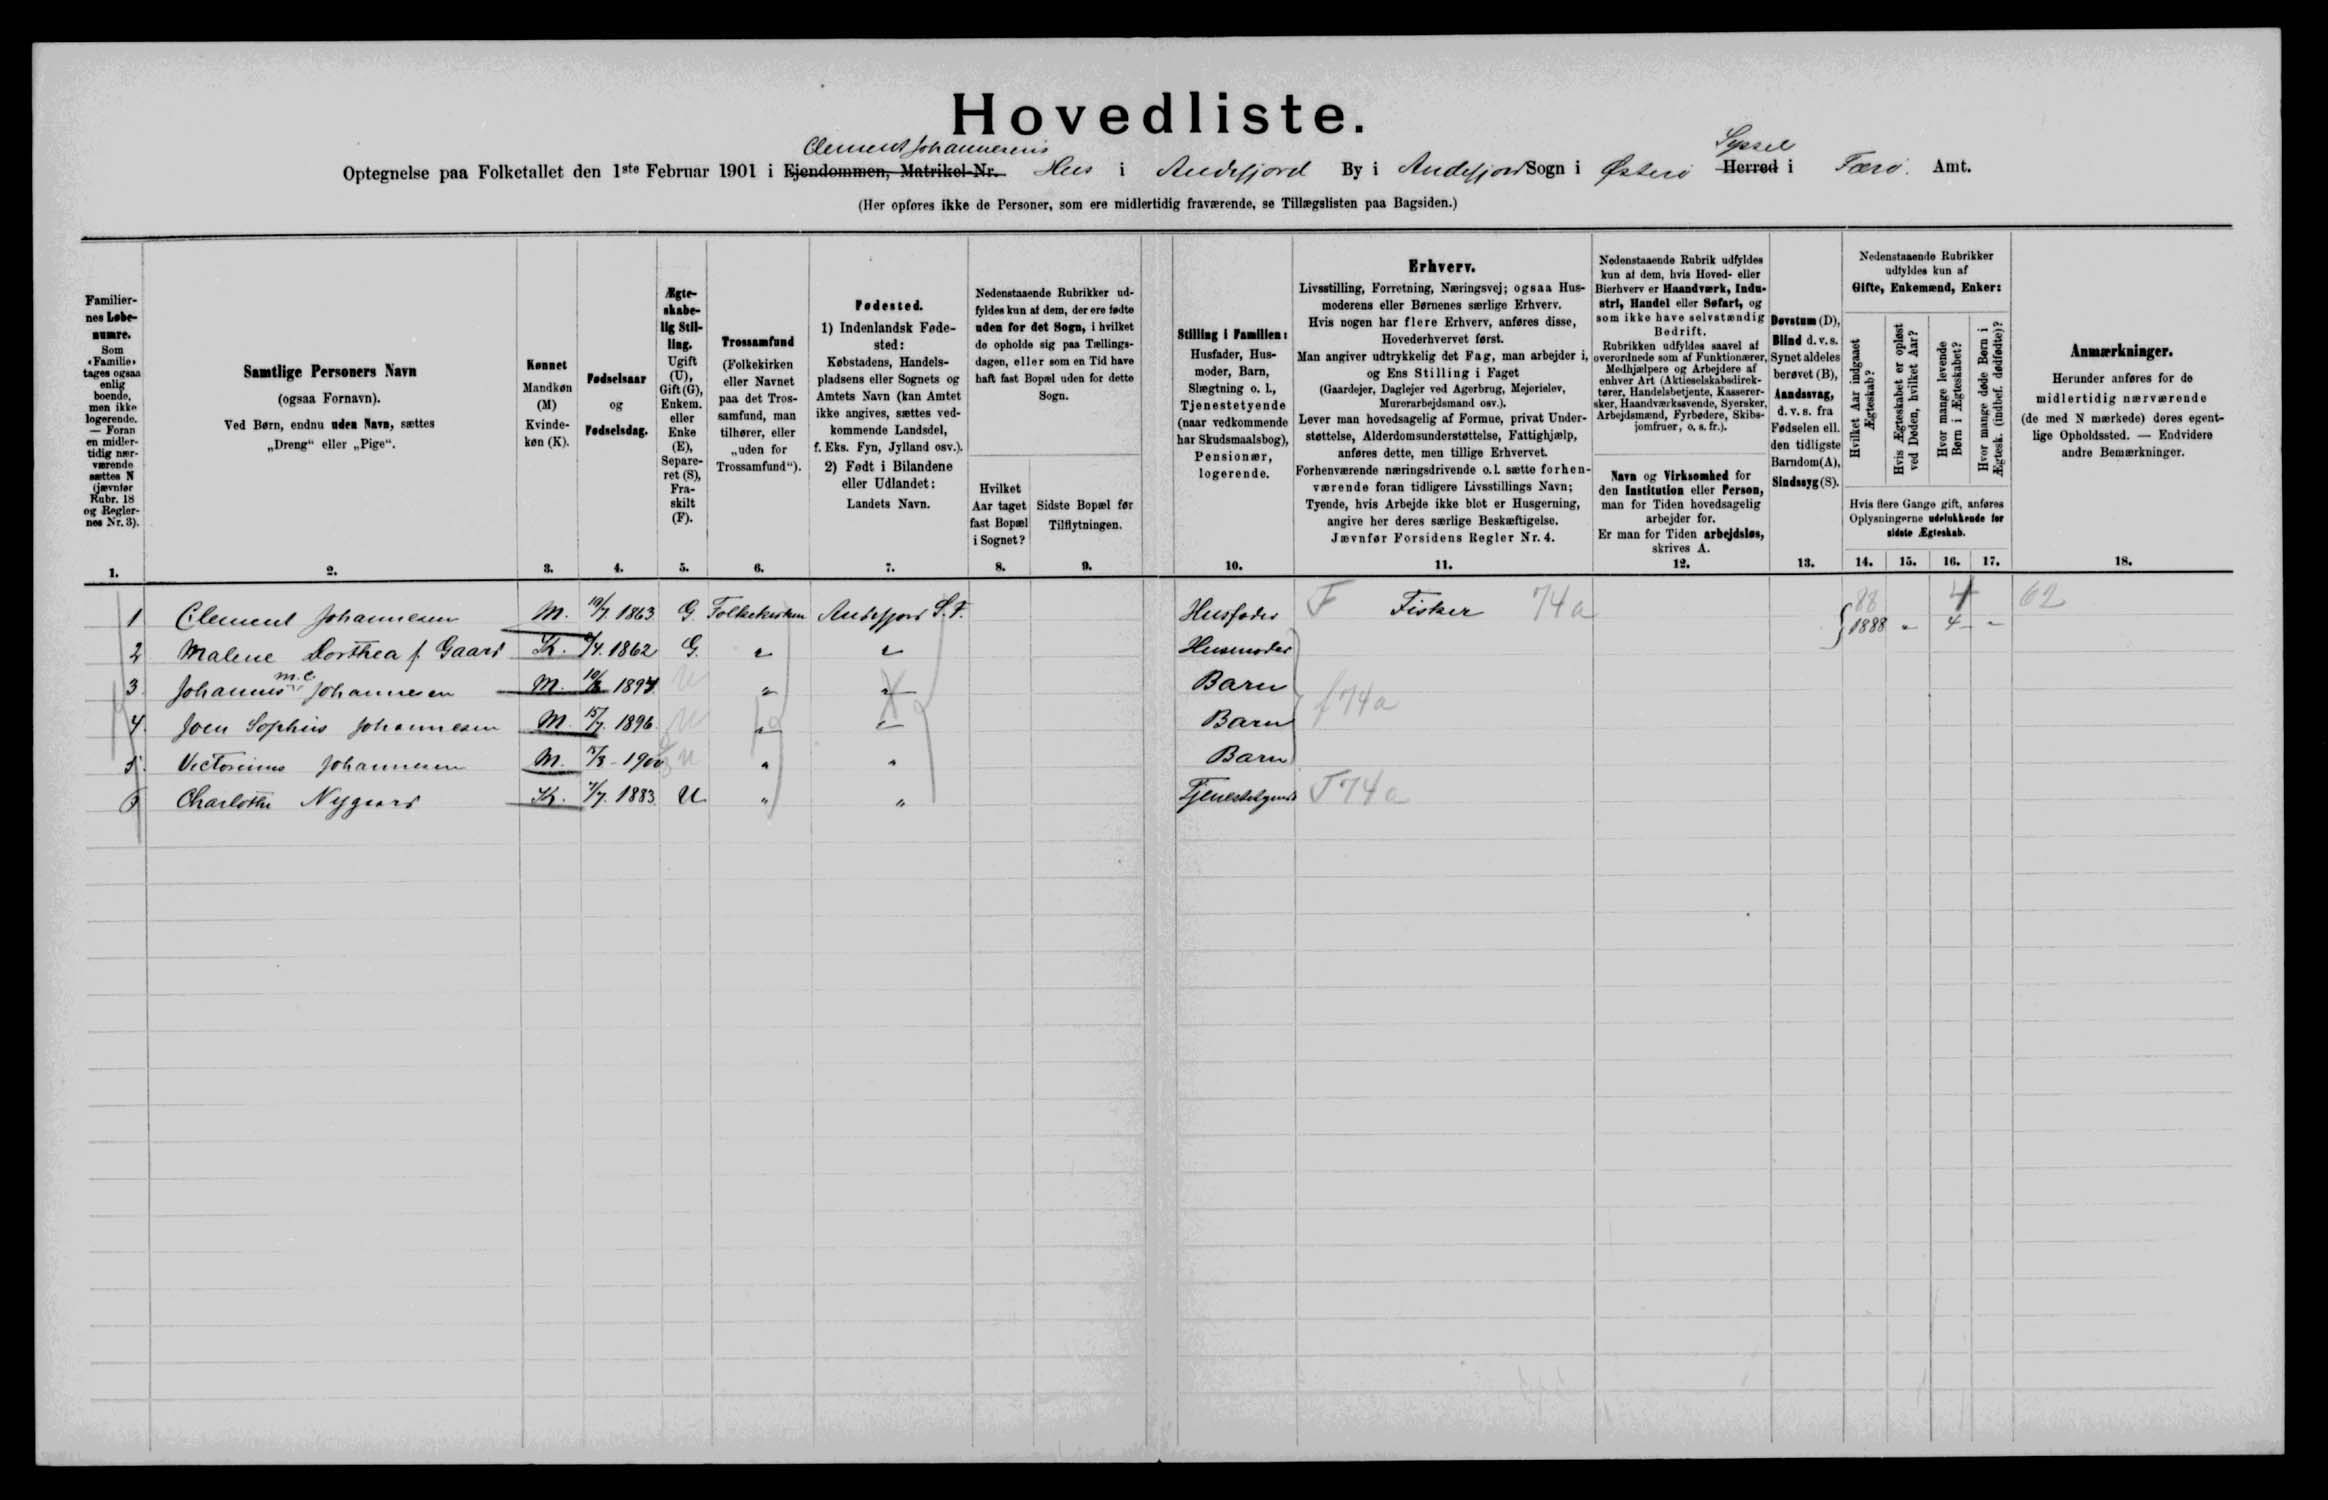 Hovedliste.
Clement Johannesens Syssel
Optegnelse paa Folketallet den 1ste Februar 1901 i Ejendommen, Matrikel-Nr. Hus i Andefjord By i Andefjord Sogn i Østerø Herred i Færø. Amt.
(Her opføres ikke de Personer, som ere midlertidig fraværende, se Tillægslisten paa Bagsiden.)
Familiernes Løbenumre.
Som «Familie» tages ogsaa enlig boende, men ikke logerende. — Foran en midlertidig nærværende sættes N (jævnfør Rubr. 18 og Reglernes Nr. 3).
Samtlige Personers Navn
(ogsaa Fornavn).
Ved Børn, endnu uden Navn, sættes
„Dreng“ eller „Pige“.
Kønnet
Mandkøn (M)
Kvindekøn (K).
Fødselsaar
og
Fødselsdag.
Ægteskabelig Stilling.
Ugift (U), Gift (G), Enkem. eller Enke (E), Separeret (S), Fraskilt (F).
Trossamfund
(Folkekirken eller Navnet paa det Trossamfund, man tilhører, eller „uden for Trossamfund“).
Fødested.
1) Indenlandsk Fødested:
Købstadens, Handelspladsens eller Sognets og Amtets Navn (kan Amtet ikke angives, sættes vedkommende Landsdel, f. Eks. Fyn, Jylland osv.).
2) Født i Bilandene eller Udlandet:
Landets Navn.
Nedenstaaende Rubrikker udfyldes kun af dem, der ere fødte uden for det Sogn, i hvilket de opholde sig paa Tællingsdagen, eller som en Tid have haft fast Bopæl uden for dette Sogn.
Hvilket Aar taget fast Bopæl i Sognet?
Sidste Bopæl før Tilflytningen.
Stilling i Familien:
Husfader, Husmoder, Barn, Slægtning o. l., Tjenestetyende (naar vedkommende har Skudsmaalsbog), Pensionær, logerende.
Erhverv.
Livsstilling, Forretning, Næringsvej; ogsaa Husmoderens eller Børnenes særlige Erhverv.
Hvis nogen har flere Erhverv, anføres disse, Hovederhvervet først.
Man angiver udtrykkelig det Fag, man arbejder i, og Ens Stilling i Faget
(Gaardejer, Daglejer ved Agerbrug, Mejerielev, Murerarbejdsmand osv.).
Lever man hovedsagelig af Formue, privat Understøttelse, Alderdomsunderstøttelse, Fattighjælp, anføres dette, men tillige Erhvervet.
Forhenværende næringsdrivende o. l. sætte forhenværende foran tidligere Livsstillings Navn;
Tyende, hvis Arbejde ikke blot er Husgerning, angive her deres særlige Beskæftigelse.
Jævnfør Forsidens Regler Nr. 4.
Nedenstaaende Rubrik udfyldes kun af dem, hvis Hoved- eller Bierhverv er Haandværk, Industri, Handel eller Søfart, og som ikke have selvstændig Bedrift.
Rubrikken udfyldes saavel af overordnede som af Funktionærer, Medhjælpere og Arbejdere af enhver Art (Aktieselskabsdirektører, Handelsbetjente, Kasserersker, Haandværkssvende, Syersker, Arbejdsmænd, Fyrbødere, Skibsjomfruer, o. s. fr.).
Navn og Virksomhed for den Institution eller Person, man for Tiden hovedsagelig arbejder for.
Er man for Tiden arbejdsløs, skrives A.
Døvstum (D), Blind d. v. s. Synet aldeles berøvet (B), Aandssvag, d. v. s. fra Fødselen ell. den tidligste Barndom (A), Sindssyg (S).
Nedenstaaende Rubrikker udfyldes kun af
Gifte, Enkemænd, Enker:
Hvilket Aar indgaaet Ægteskab?
Hvis Ægteskabet er opløst ved Døden, hvilket Aar?
Hvor mange levende Børn i Ægteskabet?
Hvor mange døde Børn i Ægtesk. (indbef. dødfødte)?
Hvis flere Gange gift, anføres Oplysningerne udelukkende for sidste Ægteskab.
Anmærkninger.
Herunder anføres for de midlertidig nærværende (de med N mærkede) deres egentlige Opholdssted. — Endvidere andre Bemærkninger.
1. 2. 3. 4. 5. 6. 7. 8. 9. 10. 11. 12. 13. 14. 15. 16. 17. 18.
1 Clement Johannesen M. 10/7 1863 G Folkekirken Andefjord S. F. Husfader F Fisker 74a 88 4 62
1888 " 4 "
2 Malene Dorthea f. Gaard K. /4. 1862 G. " " Husmoder
3 Johannes M. C. Johannesen M. 10/ 1894 U " " Barn f 74a
4. Joen Sophus Johannesen M 15/7. 1896 U " " Barn
5. Victorinus Johannesen M. /3 - 1900 U " " Barn
6 Charlothe Nygaard K. /7. 1883 U " " Tjenestetyende F 74a